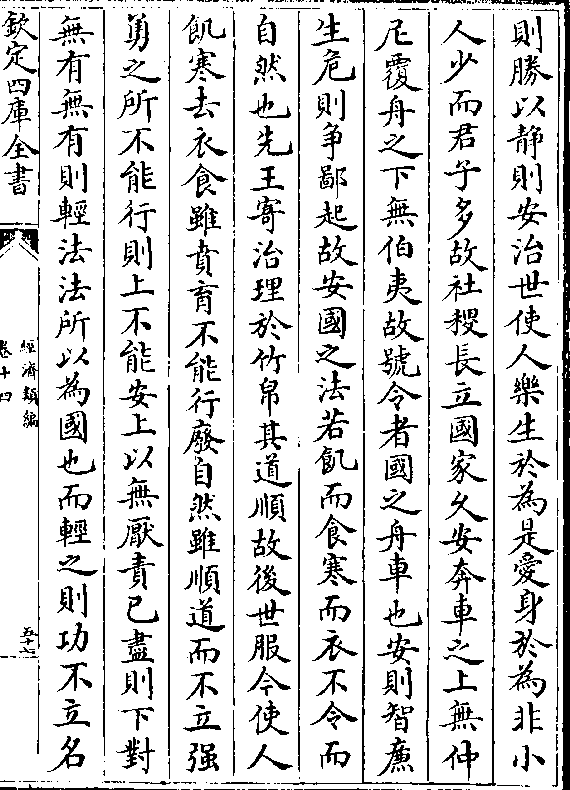 則勝以静則安治世使人樂生於為是愛身於為非小
人少而君子多故社稷長立國家久安奔車之上無仲
尼覆舟之下無伯夷故號令者國之舟車也安則智亷
生危則争鄙起故安國之法若飢而食寒而衣不令而
自然也先王寄治理於竹帛其道順故後世服今使人
飢寒去衣食雖賁育不能行廢自然雖順道而不立强
勇之所不能行則上不能安上以無厭責已盡則下對
無有無有則輕法法所以為國也而輕之則功不立名
欽定四庫全書
經濟類編
卷十四
五十七